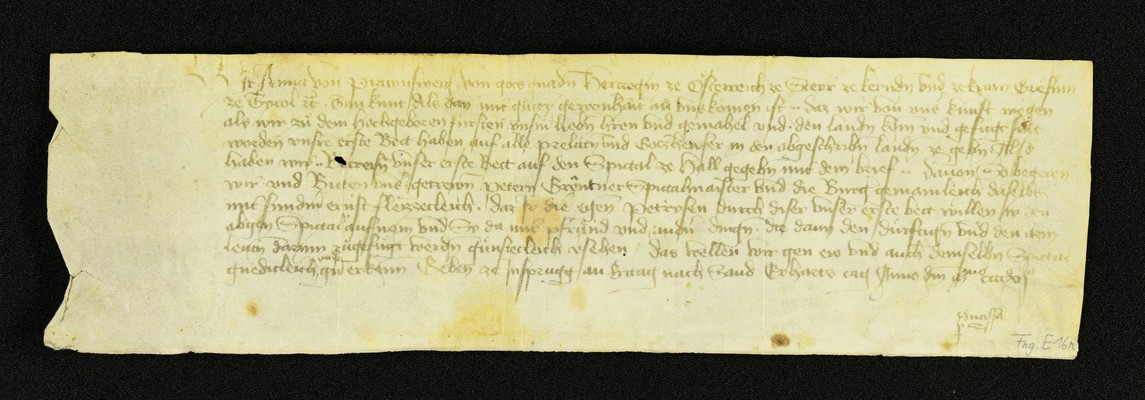 Wir Anna von Prawnsweig von gots gnadn Herczogin ze Österreich ze Steyr ze kerndn und ze krain Grefinn
ze Tyrol etc. Tun kunt als dan mit guter gewonhait an uns komen ist daz wir von uns kunft wegen
als wir zu dem hochgeboren fursten unserm liebn hren und gemahel und den landn kom und gefugt sein
worden unsre erste Bett haben auf alle prelatn und Gotzhewser in den abgeschribn landn ze gebn Also
haben wir Petreisn unser erste bett auf den Spital ze Hall gegebn mit dem brief Dauon so begeren
wir und Biten uns getrewn Petern Spitalmaister und die Burg gemainkleich daselbs
mit sundm ernst fleizzecleich daz Ir die egen Petrysen durch diser unser erste bett willen in den
abgen Spital aufnem und Sy da mit pfrund und andn dingn die dann den durftign und den arm
leutn darinn zugefugt werdn gunstecleich vsehen das wellen wir gen ew und auch demselbn Spital
gnedicleich erkenn Geben ze Insprugg an fritag nach Sand Erharts tag Anno dm
Fng. E 16